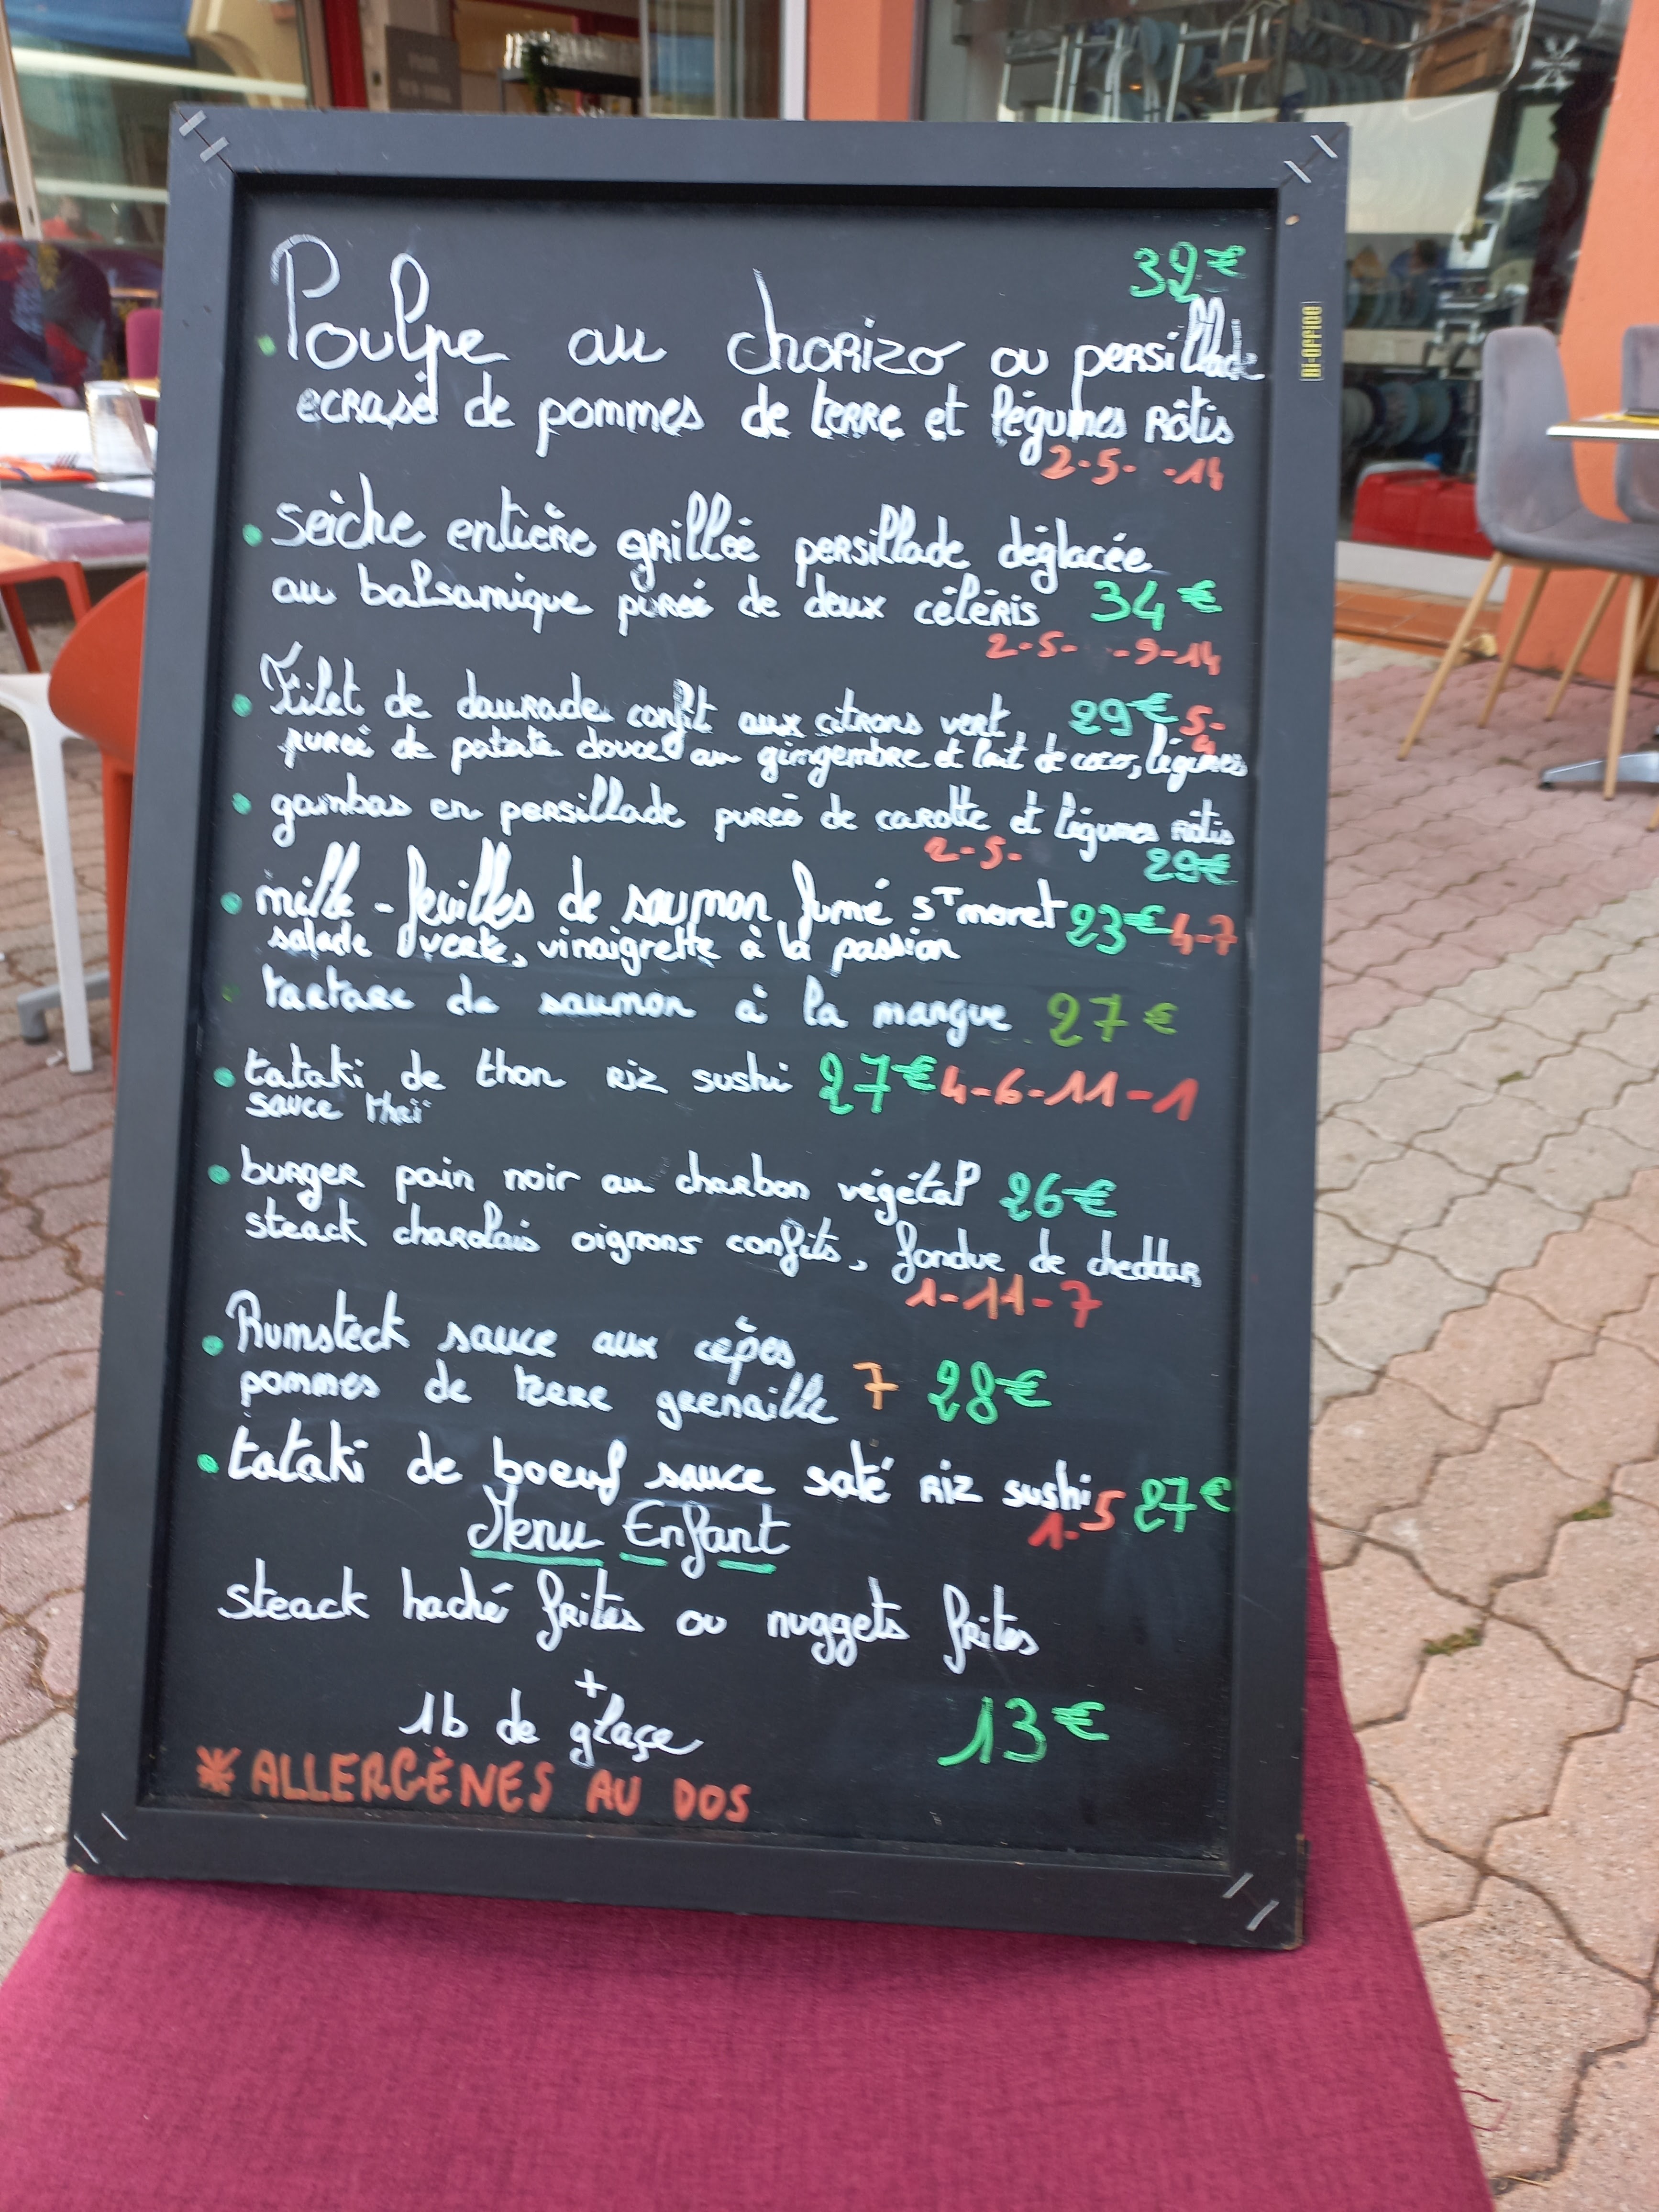 32€
Poulpe au chorizo ou persillade
ecrasé de pommes de terre et légumes rôtis
2-5- -14
seiche entière grillée persillade déglacée
au balsamique purée de deux céléris 34€
2-5- -9-14
Filet de daurade confit aux citrons vert 29€ 5-
purée de patate douce au gingembre et lait de coco, légumes
gambas en persillade purée de carotte et légumes rôtis
2-5-
29€
mille-feuilles de saumon fumé sT moret 23€ 4-7
salade verte, vinaigrette à la passion
tartare de saumon à la mangue 27€
tataki de thon riz sushi 27€ 4-6-11-1
sauce thaï
burger pain noir au charbon végétal 26€
steack charolais oignons confits, fondue de cheddar
1-11-7
Rumsteck sauce aux cèpes
pommes de terre grenaille 7 28€
tataki de boeuf sauce saté riz sushi 27€
1-5
Menu Enfant
steack haché frites ou nuggets frites
+
1b de glaçe 13€
* ALLERGÈNES AU DOS
BI-OFFICE